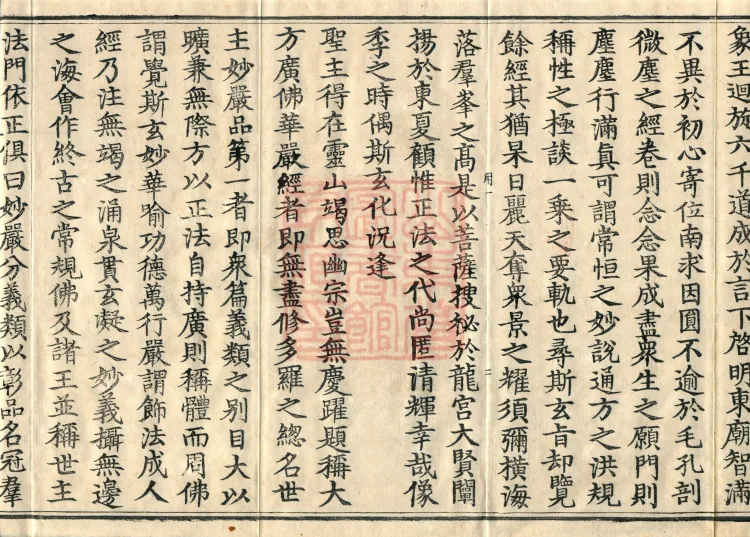 象王迴旋六千道成於言下啓明東廟智滿
不異於初心寄位南求因圓不逾於毛孔剖
微塵之經卷則念念果成盡衆生之願門則
塵塵行滿眞可謂常恒之妙說通方之洪規
稱性之極談一乘之要軌也尋斯玄旨却覽
餘經其猶杲日麗天奪衆景之耀須彌橫海
落羣峯之高是以菩薩搜祕於龍宮大賢闡
揚於東夏顧惟正法之代尚匿清輝幸哉像
季之時偶斯玄化況逢
聖主得在靈山竭思幽宗豈無慶躍題稱大
方廣佛華嚴經者即無盡修多羅之總名世
主妙嚴品第一者即衆篇義類之別目大以
曠兼無際方以正法自持廣則稱體而周佛
謂覺斯玄妙華喻功德萬行嚴謂飾法成人
經乃注無竭之涌泉貫玄凝之妙義攝無邊
之海會作終古之常規佛及諸王並稱世主
法門依正俱曰妙嚴分義類以彰品名冠羣